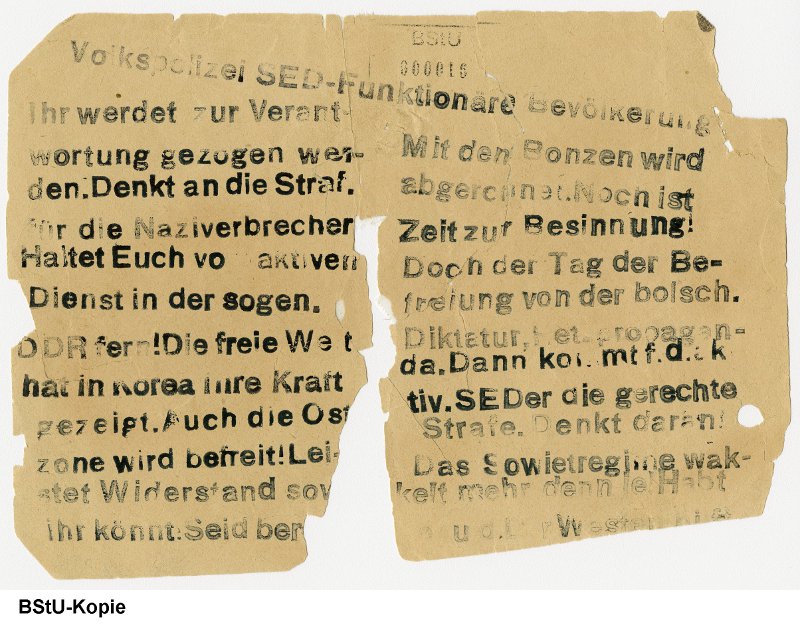 BStU
000016
Volkspolizei SED-Funktionäre Bevölkerung
Ihr werdet zur Verant-
wortung gezogen wer-
den. Denkt an die Straf.
für die Naziverbrecher
Haltet Euch vo aktiven
Dienst in der sogen.
DDR fern! Die freie Welt
hat in Korea ihre Kraft
gezeigt. Auch die Ost
zone wird befreit! Lei-
stet Widerstand sow
ihr könnt: Seid ber
Mit den Bonzen wird
abgerechnet. Noch ist
Zeit zur Besinnung!
Doch der Tag der Be=
freiung von der bolsch.
Diktatur, propagan-
da. Dann kommt f. d.
tiv. SEDer die gerechte
Strafe. Denkt daran!
Das Sowietregime wak-
kelt mehr denn je! Habt
Westen
BStU-Kopie